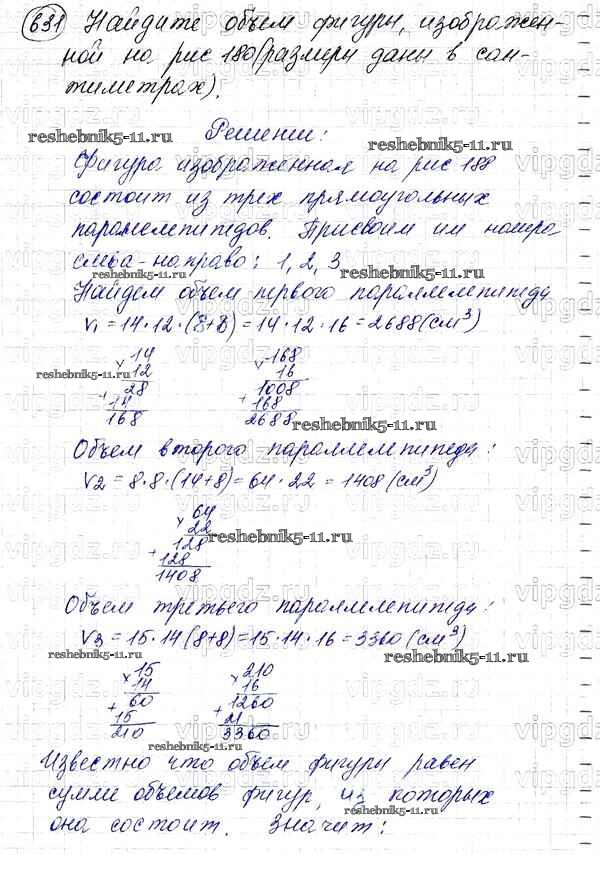 631 Найдите объем фигуры, изображен-
ной на рис 180 (размеры даны в сан-
тиметрах).
Решение:
reshebnik5-11.ru
reshebnik5-11.ru
Фигура изображенная на рис 188
состоит из трех прямоугольных
параллелепипедов. Присвоим им номера
слева-направо: 1, 2, 3
reshebnik5-11.ru
reshebnik5-11.ru
Найдем объем первого параллелепипеда
V1 = 14·12·(8+8) = 14·12·16 = 2688 (см³)
14 168
× 12 × 16
reshebnik5-11.ru
28 1008
+ 14 + 168
168 2688
reshebnik5-11.ru
Объем второго параллелепипеда:
V2 = 8·8·(14+8) = 64·22 = 1408 (см³)
64
× 22
reshebnik5-11.ru
128
+ 128
1408
Объем третьего параллелепипеда:
V3 = 15·14(8+8) = 15·14·16 = 3360 (см³)
reshebnik5-11.ru
reshebnik5-11.ru
15 210
× 14 × 16
60 1260
+ 15 + 21
210 3360
reshebnik5-11.ru
Известно что объем фигуры равен
сумме объемов фигур, из которых
reshebnik5-11.ru
она состоит. Значит:
vipgdz.ru